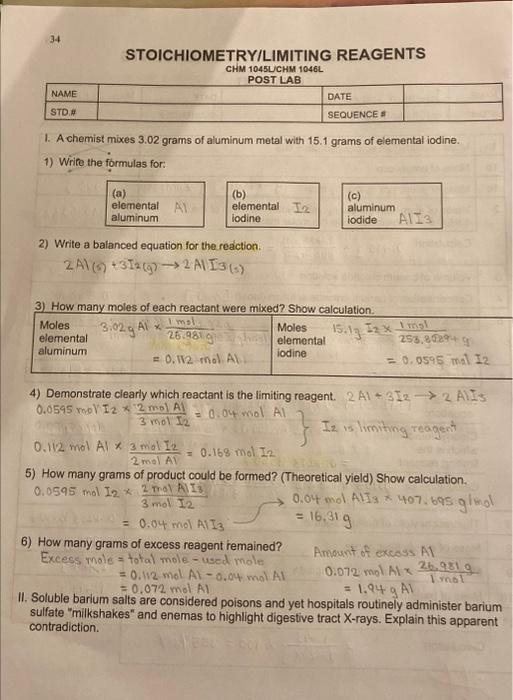 34
STOICHIOMETRY/LIMITING REAGENTS
CHM 1045L/CHM 1046L
POST LAB
NAME DATE
STD.# SEQUENCE #
I. A chemist mixes 3.02 grams of aluminum metal with 15.1 grams of elemental iodine.
1) Write the formulas for:
(a) elemental aluminum Al
(b) elemental iodine I2
(c) aluminum iodide AlI3
2) Write a balanced equation for the reaction.
2Al(s) + 3I2(g) → 2AlI3(s)
3) How many moles of each reactant were mixed? Show calculation.
Moles elemental aluminum 3.02g Al × 1 mol / 26.981 g
= 0.112 mol Al
Moles elemental iodine 15.1g I2 × 1 mol / 253.80894 g
= 0.0595 mol I2
4) Demonstrate clearly which reactant is the limiting reagent. 2Al + 3I2 → 2AlI3
0.0595 mol I2 × 2 mol Al / 3 mol I2 = 0.04 mol Al
} I2 is limiting reagent
0.112 mol Al × 3 mol I2 / 2 mol Al = 0.168 mol I2
5) How many grams of product could be formed? (Theoretical yield) Show calculation.
0.0595 mol I2 × 2 mol AlI3 / 3 mol I2
= 0.04 mol AlI3
→ 0.04 mol AlI3 × 407.695 g/mol
= 16.31 g
6) How many grams of excess reagent remained?
Excess mole = total mole - used mole
= 0.112 mol Al - 0.04 mol Al
= 0.072 mol Al
Amount of excess Al
0.072 mol Al × 26.981 g / 1 mol
= 1.94 g Al
II. Soluble barium salts are considered poisons and yet hospitals routinely administer barium
sulfate "milkshakes" and enemas to highlight digestive tract X-rays. Explain this apparent
contradiction.